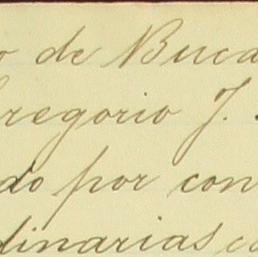 o de Buca
Gregorio J.
do por con
dinarias co